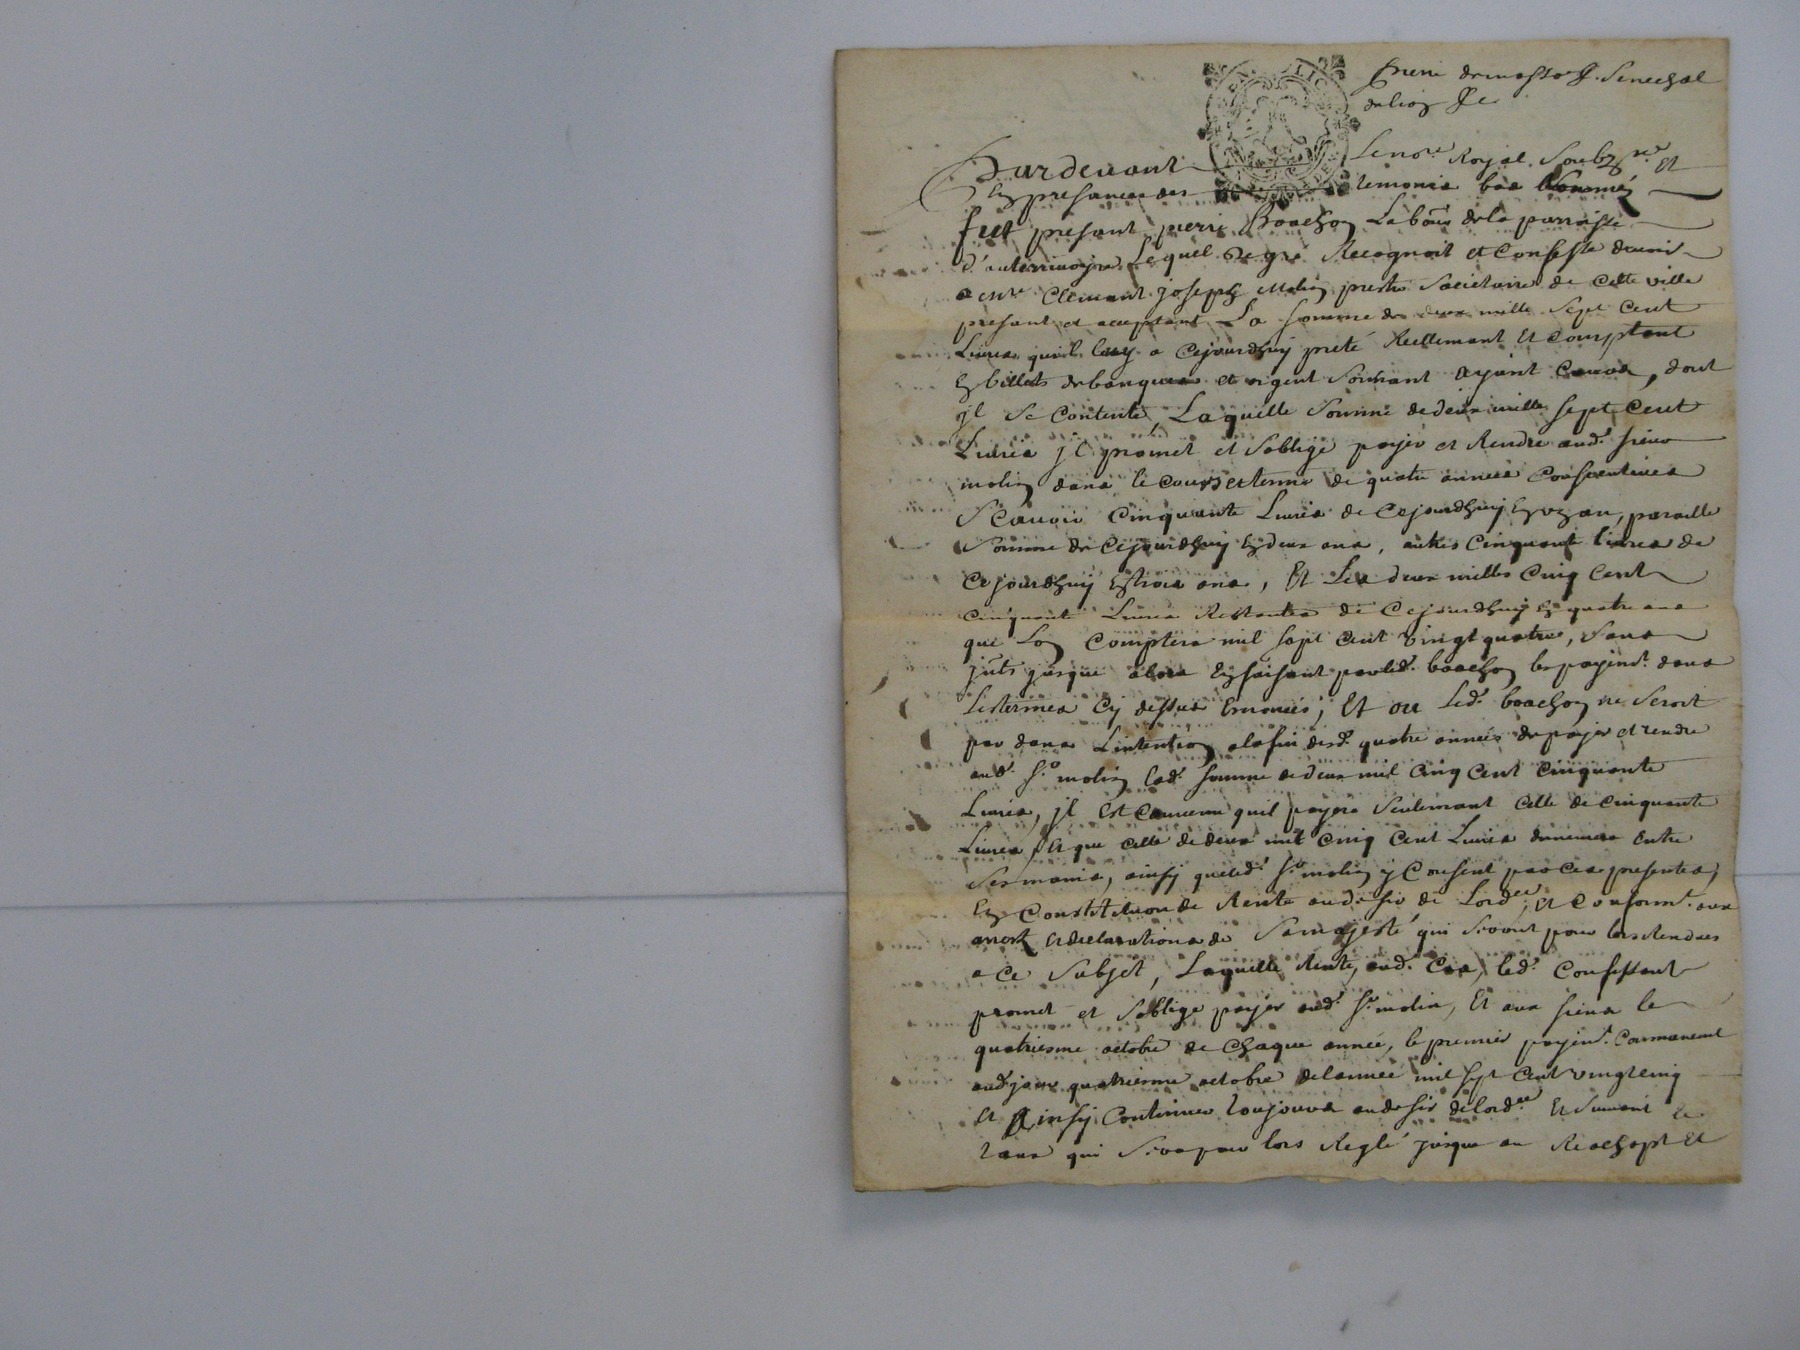 de lion
Pardevant Le no.re Royal Soubz.né Et
En presance des temoins bas Nommés
fut presant pierre Boachon Labou.r de la parroisse
Lequel de gré Recognoit et Confesse devoir
a m.re Clemant joseph Molin prestre Societaire de Cette ville
presant et acceptant La somme de deux mille Sept Cent
Livres qu'il luy a Cejourdhuy preté Reellemant Et Comptant
En billets de banque et argent Sonnant ayant Cours, dont
jl Se Contente, Laquelle Somme de deux mille Sept Cent
Livres jl promet et S'oblige payer et Rendre aud. sieur
molin dans le cours et terme de quatre années Consecutives
Scavoir Cinquante Livres de Cejourdhuy En vn an, pareille
Somme de Cejourdhuy En deux ans, autres Cinquante livres de
Cejourdhuy En trois ans, Et Les deux milles Cinq Cent
Cinquante Livres Restantes de Cejourdhuy En quatre ans
que Lon Comptera mil Sept Cent vingt quatre, Sans
jnts jusque alors En faisant par led. boachon les payem.t dans
Les termes Cy dessus Enoncés; Et ou Led. boachon ne Seroit
pas dans L'intention a la fin desd. quatre années de payer et rendre
aud. S.r molin lad. Somme de deux mil Cinq Cent Cinquante
Livres, jl Est Convenu quil payera Seulemant Celle de Cinquante
Livres, Et que Celle de deux mil Cinq Cent Livres demeurera Entre
Ses mains, ainsy que led. S.r molin y Consent par Ces presentes,
En Constitution de Rente au desir de Lord.ce, Et Conform.t aux
arrests Et declarations de Sa majesté qui Seront pour lors Rendues
a Ce Subjet, Laquelle Rente, aud. Cas, led. Confessant
promet et S'oblige payer aud. S.r molin, Et aux siens le
quatriesme octobre de Chaque année, le premier payem.t Commancant
aud. jour quatriesme octobre de l'année mil Sept Cent vingt cinq
Et Ainsy Continuer toujours au desir de lord.ce Et Suivant le
taux qui Sera pour lors Reglé jusque au Reachapt Et